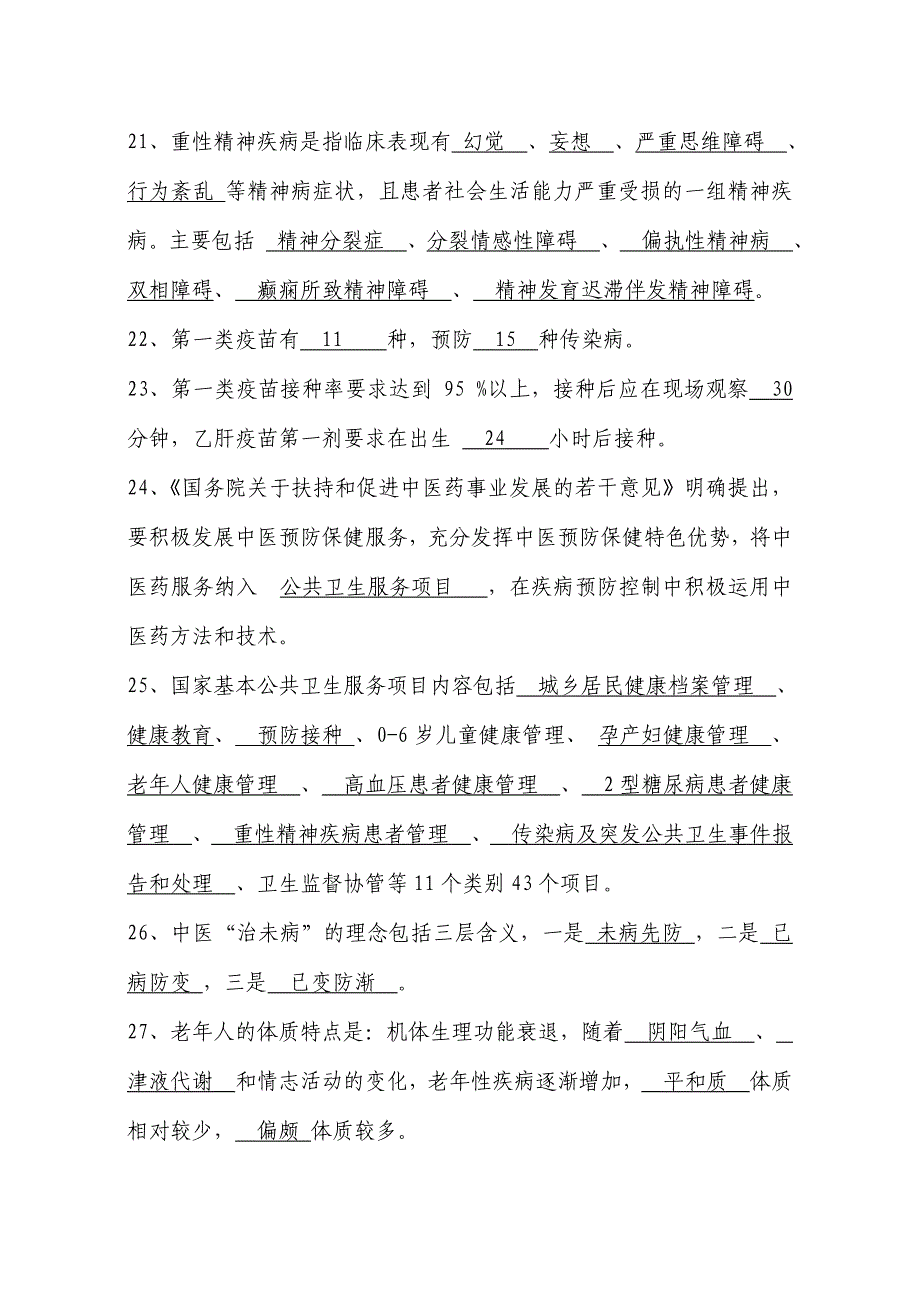 21、重性精神疾病是指临床表现有 幻觉 、妄想 、严重思维障碍 、
行为紊乱 等精神病症状，且患者社会生活能力严重受损的一组精神疾
病。主要包括 精神分裂症 、分裂情感性障碍 、 偏执性精神病 、
双相障碍、 癫痫所致精神障碍 、 精神发育迟滞伴发精神障碍。
22、第一类疫苗有 11 种，预防 15 种传染病。
23、第一类疫苗接种率要求达到 95 %以上，接种后应在现场观察 30
分钟，乙肝疫苗第一剂要求在出生 24 小时后接种。
24、《国务院关于扶持和促进中医药事业发展的若干意见》明确提出，
要积极发展中医预防保健服务，充分发挥中医预防保健特色优势，将中
医药服务纳入 公共卫生服务项目 ，在疾病预防控制中积极运用中
医药方法和技术。
25、国家基本公共卫生服务项目内容包括 城乡居民健康档案管理 、
健康教育、 预防接种 、0-6 岁儿童健康管理、 孕产妇健康管理 、
老年人健康管理 、 高血压患者健康管理 、 2 型糖尿病患者健康
管理 、 重性精神疾病患者管理 、 传染病及突发公共卫生事件报
告和处理 、卫生监督协管等 11 个类别 43 个项目。
26、中医“治未病”的理念包括三层含义，一是 未病先防 ，二是 已
病防变 ，三是 已变防渐 。
27、老年人的体质特点是：机体生理功能衰退，随着 阴阳气血 、
津液代谢 和情志活动的变化，老年性疾病逐渐增加， 平和质 体质
相对较少， 偏颇 体质较多。